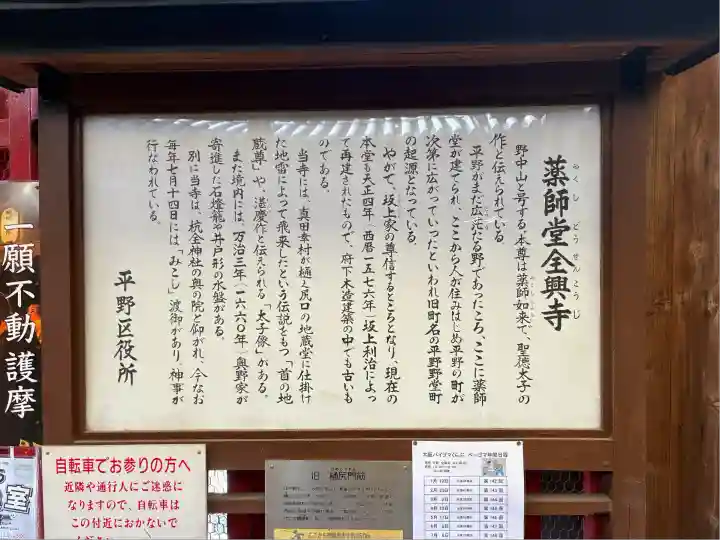 薬師堂全興寺
やくしどうせんこうじ
野中山と号する。本尊は薬師如来で、聖徳太子の
作と伝えられている
平野がまだ広茫たる野であったころ、ここに薬師
堂が建てられ、ここから人が住みはじめ平野の町が
次第に広がっていったといわれ旧町名の平野野堂町
の起源となっている。
やがて、坂上家の尊信するところとなり、現在の
本堂も天正四年(西暦一五七六年)坂上利治によっ
て再建されたもので、府下木造建築の中でも古いも
のである。
当寺には、真田幸村が樋之尻口の地蔵堂に仕掛け
た地雷によって飛来したという伝説をもつ「首の地
蔵尊」や、湛慶作と伝えられる「太子像」がある。
また境内には、万治三年(一六六〇年)奥野家が
寄進した石燈籠や井戸形の水盤がある。
別に当寺は、杭全神社の奥の院と仰がれ、今なお
毎年七月十四日には、「みこし」渡御があり、神事が
行なわれている。
平野区役所
一願不動護摩
自転車でお参りの方へ
近隣や通行人にご迷惑に
なりますので、自転車は
この付近におかないで
旧 樋尻門筋
室